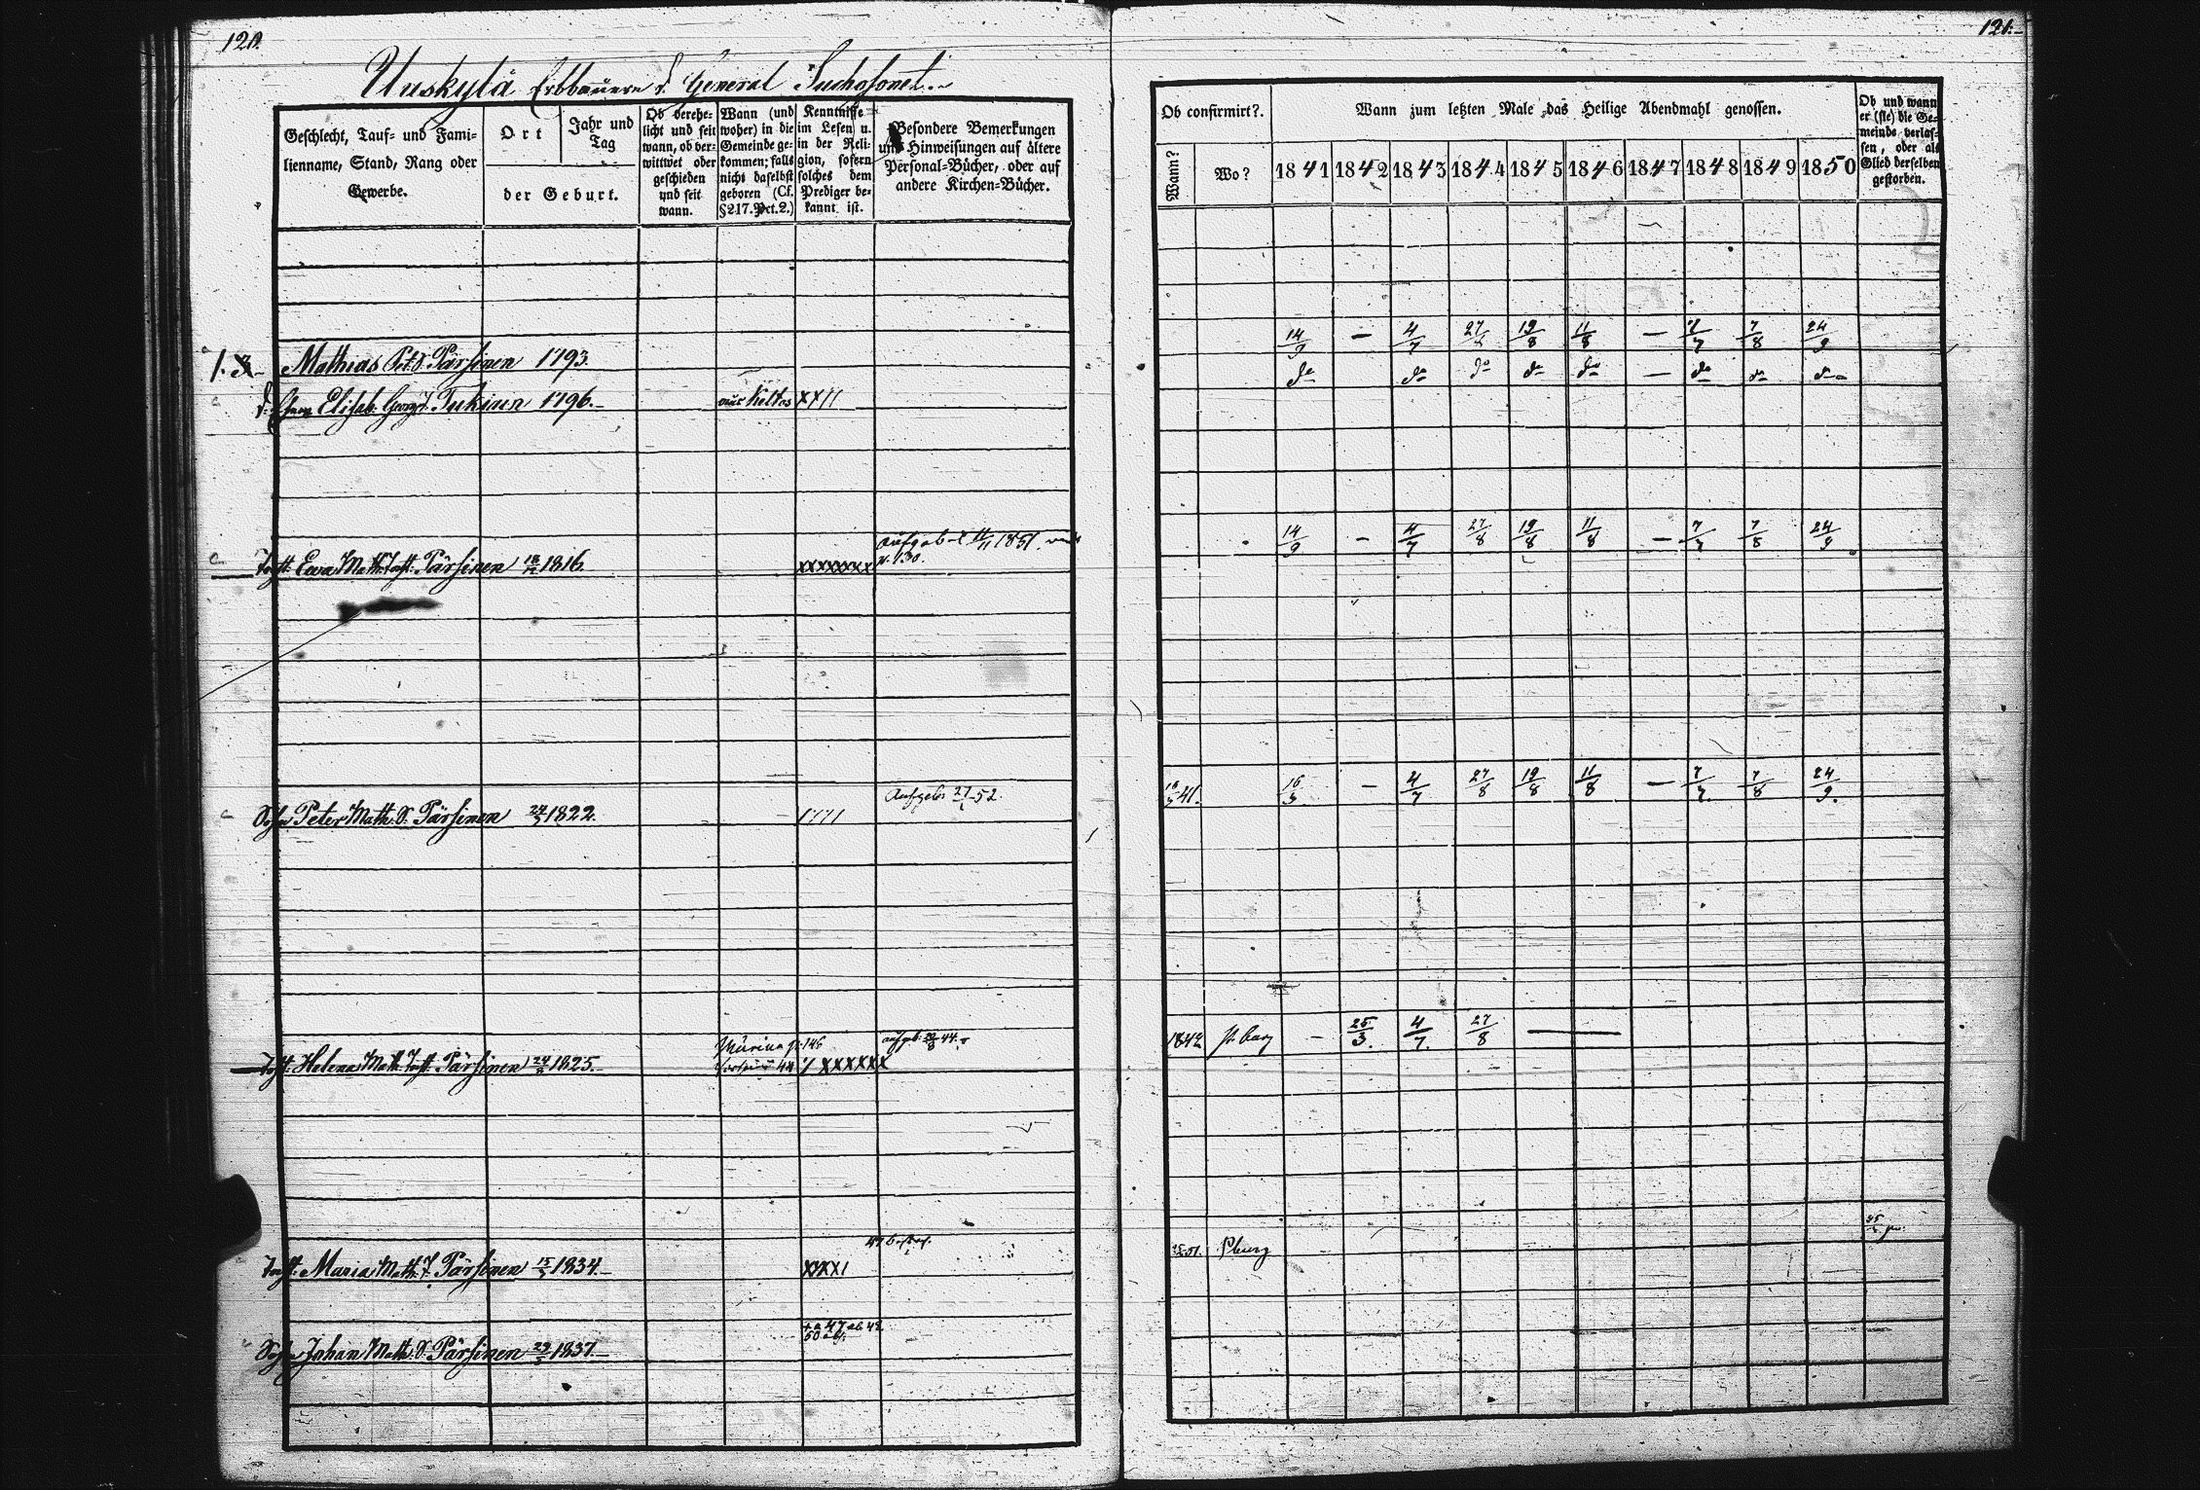 120.
Uuskylä Erbbauern d. General Suchosonet.
Geschlecht, Tauf- und Fami-
lienname, Stand, Rang oder
Gewerbe.
Ort
Jahr und
Tag
der Geburt.
Ob verehe-
licht und seit
wann, ob ver-
wittwet oder
geschieden
und seit
wann.
Wann (und
woher) in die
Gemeinde ge-
kommen; falls
nicht daselbst
geboren (Cf.
§217. Pct. 2.)
Kenntnisse
im Lesen u.
in der Reli-
gion, sofern
solches dem
Prediger be-
kannt ist.
Besondere Bemerkungen
und Hinweisungen auf ältere
Personal-Bücher, oder auf
andere Kirchen-Bücher.
1. Mathias Pet. S. Pärsinen 1793.
Elisab. Georg T. Tukiain 1796. aus Keltos XXII
Tocht. Ewa Math. Tocht. Pärsinen 1816. xxxxxxx 1851. 130.
Sohn Peter Math. S. Pärsinen 24/3 1822. 1111 Aufgeb. 27/1 52.
Tocht. Helena Math. Tocht. Pärsinen 1825. 146 xxxxxx aufgeb. 44.
Tocht. Maria Math. T. Pärsinen 1834. XXXXI
Sohn Johan Math. S. Pärsinen 1837.
121.
Ob confirmirt?
Wann?
Wo?
Wann zum letzten Male das Heilige Abendmahl genossen.
1841 1842 1843 1844 1845 1846 1847 1848 1849 1850
Ob und wann
er (sie) die Ge-
meinde verlas-
sen, oder als
Glied derselben
gestorben.
14/9 — 4/7 27/8 19/8 11/8 — 7/7 7/8 24/9
do do do do do — do do do
14/9 — 4/7 27/8 19/8 11/8 — 7/7 7/8 24/9
41. 16/3 — 4/7 27/8 19/8 11/8 — 7/7 7/8 24/9.
1842 — 25/3. 4/7. 27/8 —
Pburg